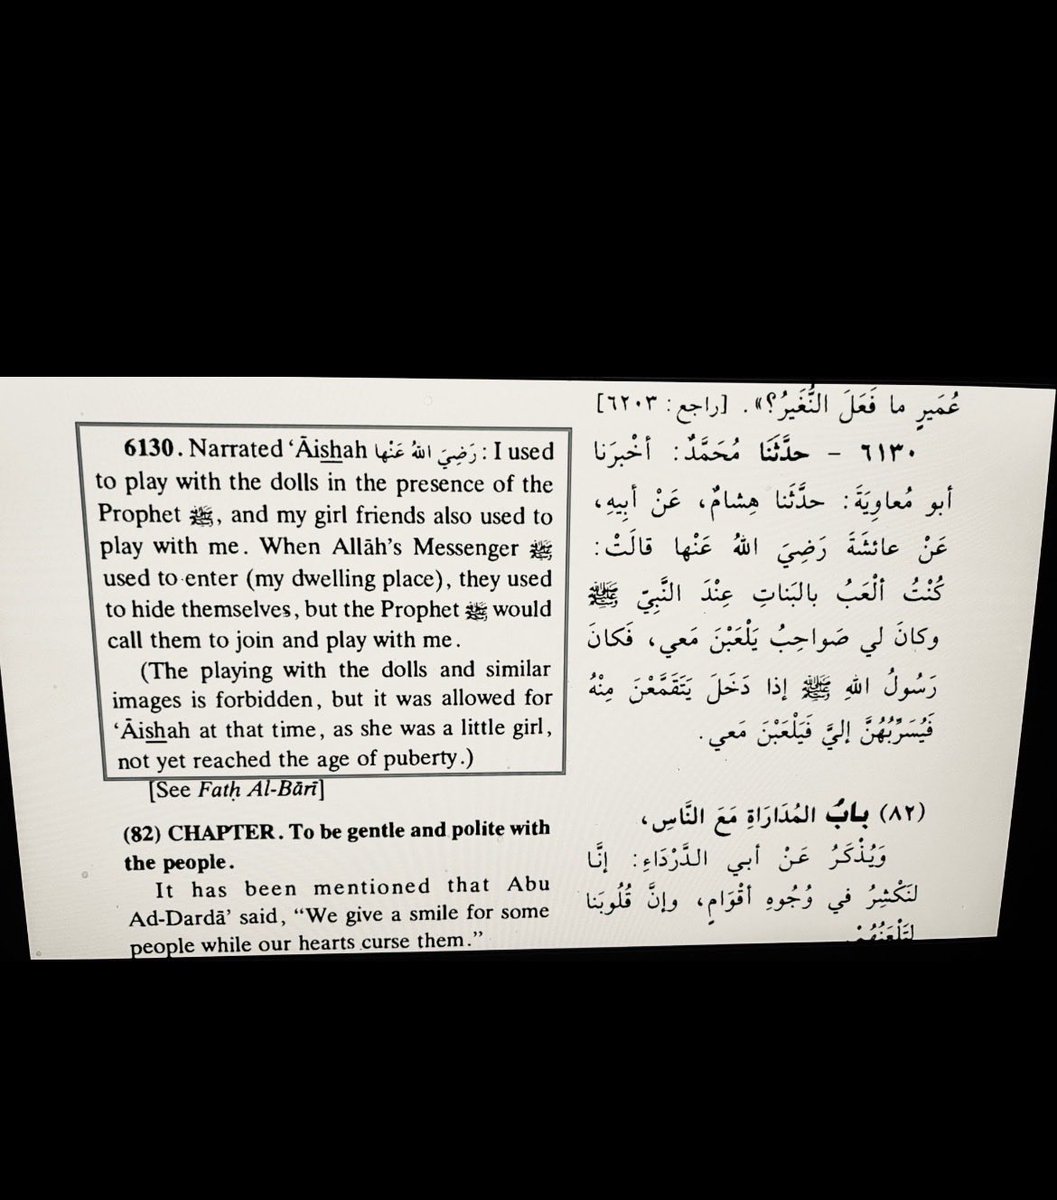 6130. Narrated ‘Āishah رَضِيَ اللهُ عَنْها: I used
to play with the dolls in the presence of the
Prophet ﷺ, and my girl friends also used to
play with me. When Allāh’s Messenger ﷺ
used to enter (my dwelling place), they used
to hide themselves, but the Prophet ﷺ would
call them to join and play with me.
(The playing with the dolls and similar
images is forbidden, but it was allowed for
‘Āishah at that time, as she was a little girl,
not yet reached the age of puberty.)
[See Fatḥ Al-Bārī]
(82) CHAPTER. To be gentle and polite with
the people.
It has been mentioned that Abu
Ad-Dardā’ said, “We give a smile for some
people while our hearts curse them.”
عُمَيرٍ ما فَعَلَ النُّغَيرُ؟». [راجع: ٦٢٠٣]
٦١٣٠ - حدَّثَنَا مُحَمَّدٌ: أخْبرَنا
أبو مُعاوِيَةَ: حدَّثَنا هِشامٌ، عَنْ أبِيهِ،
عَنْ عائشَةَ رَضِيَ اللهُ عَنْها قالَتْ:
كُنْتُ ألْعَبُ بالبَناتِ عِنْدَ النَّبِيِّ ﷺ
وكانَ لي صَواحِبُ يَلْعَبْنَ مَعي، فَكانَ
رَسُولُ اللهِ ﷺ إذا دَخَلَ يَتَقَمَّعْنَ مِنْهُ
فَيُسَرِّبُهُنَّ إليَّ فَيَلْعَبْنَ مَعي.
(٨٢) بابُ المُدَارَاةِ مَعَ النَّاسِ،
وَيُذْكَرُ عَنْ أبي الدَّرْدَاءِ: إنَّا
لنَكْشِرُ في وُجُوهِ أقْوَامٍ، وإنَّ قُلُوبَنا
لتَلْعَنُهُمْ.